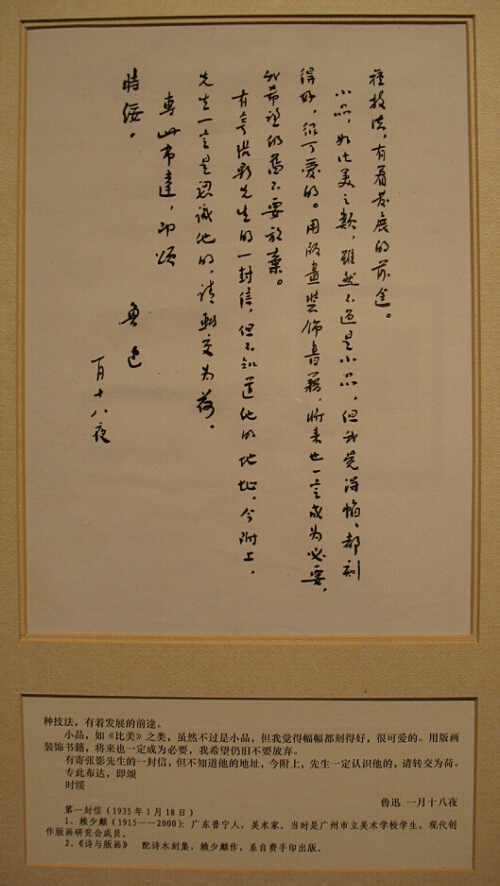 種技法,有着發展的前途。
小品,如比美之類,雖然不過是小品,但我覺得幅幅都刻
得好,很可愛的。用版畫裝飾書籍,將來也一定成為必要,
我希望仍舊不要放棄。
有寄張影先生的一封信,但不知道他的地址,今附上,
先生一定是認識他的,請轉交为荷。
專此布達,即頌
時綏。
魯迅
一月十八夜
种技法,有着发展的前途。
小晶,如《比美》之类,虽然不过是小品,但我觉得幅幅都刻得好,很可爱的。用版画
装饰书籍,将来也一定成为必要,我希望仍旧不要放弃。
有寄张影先生的一封信,但不知道他的地址,今附上,先生一定认识他的,请转交为荷。
专此布达,即颂
时绥
鲁迅 一月十八夜
第一封信(1935年1月18日)
1、赖少麒(1915——2000):广东普宁人,美术家。当时是广州市立美术学校学生,现代创
作版画研究会成员。
2、《诗与版画》 配诗木刻集,赖少麒作,系自费手印出版。